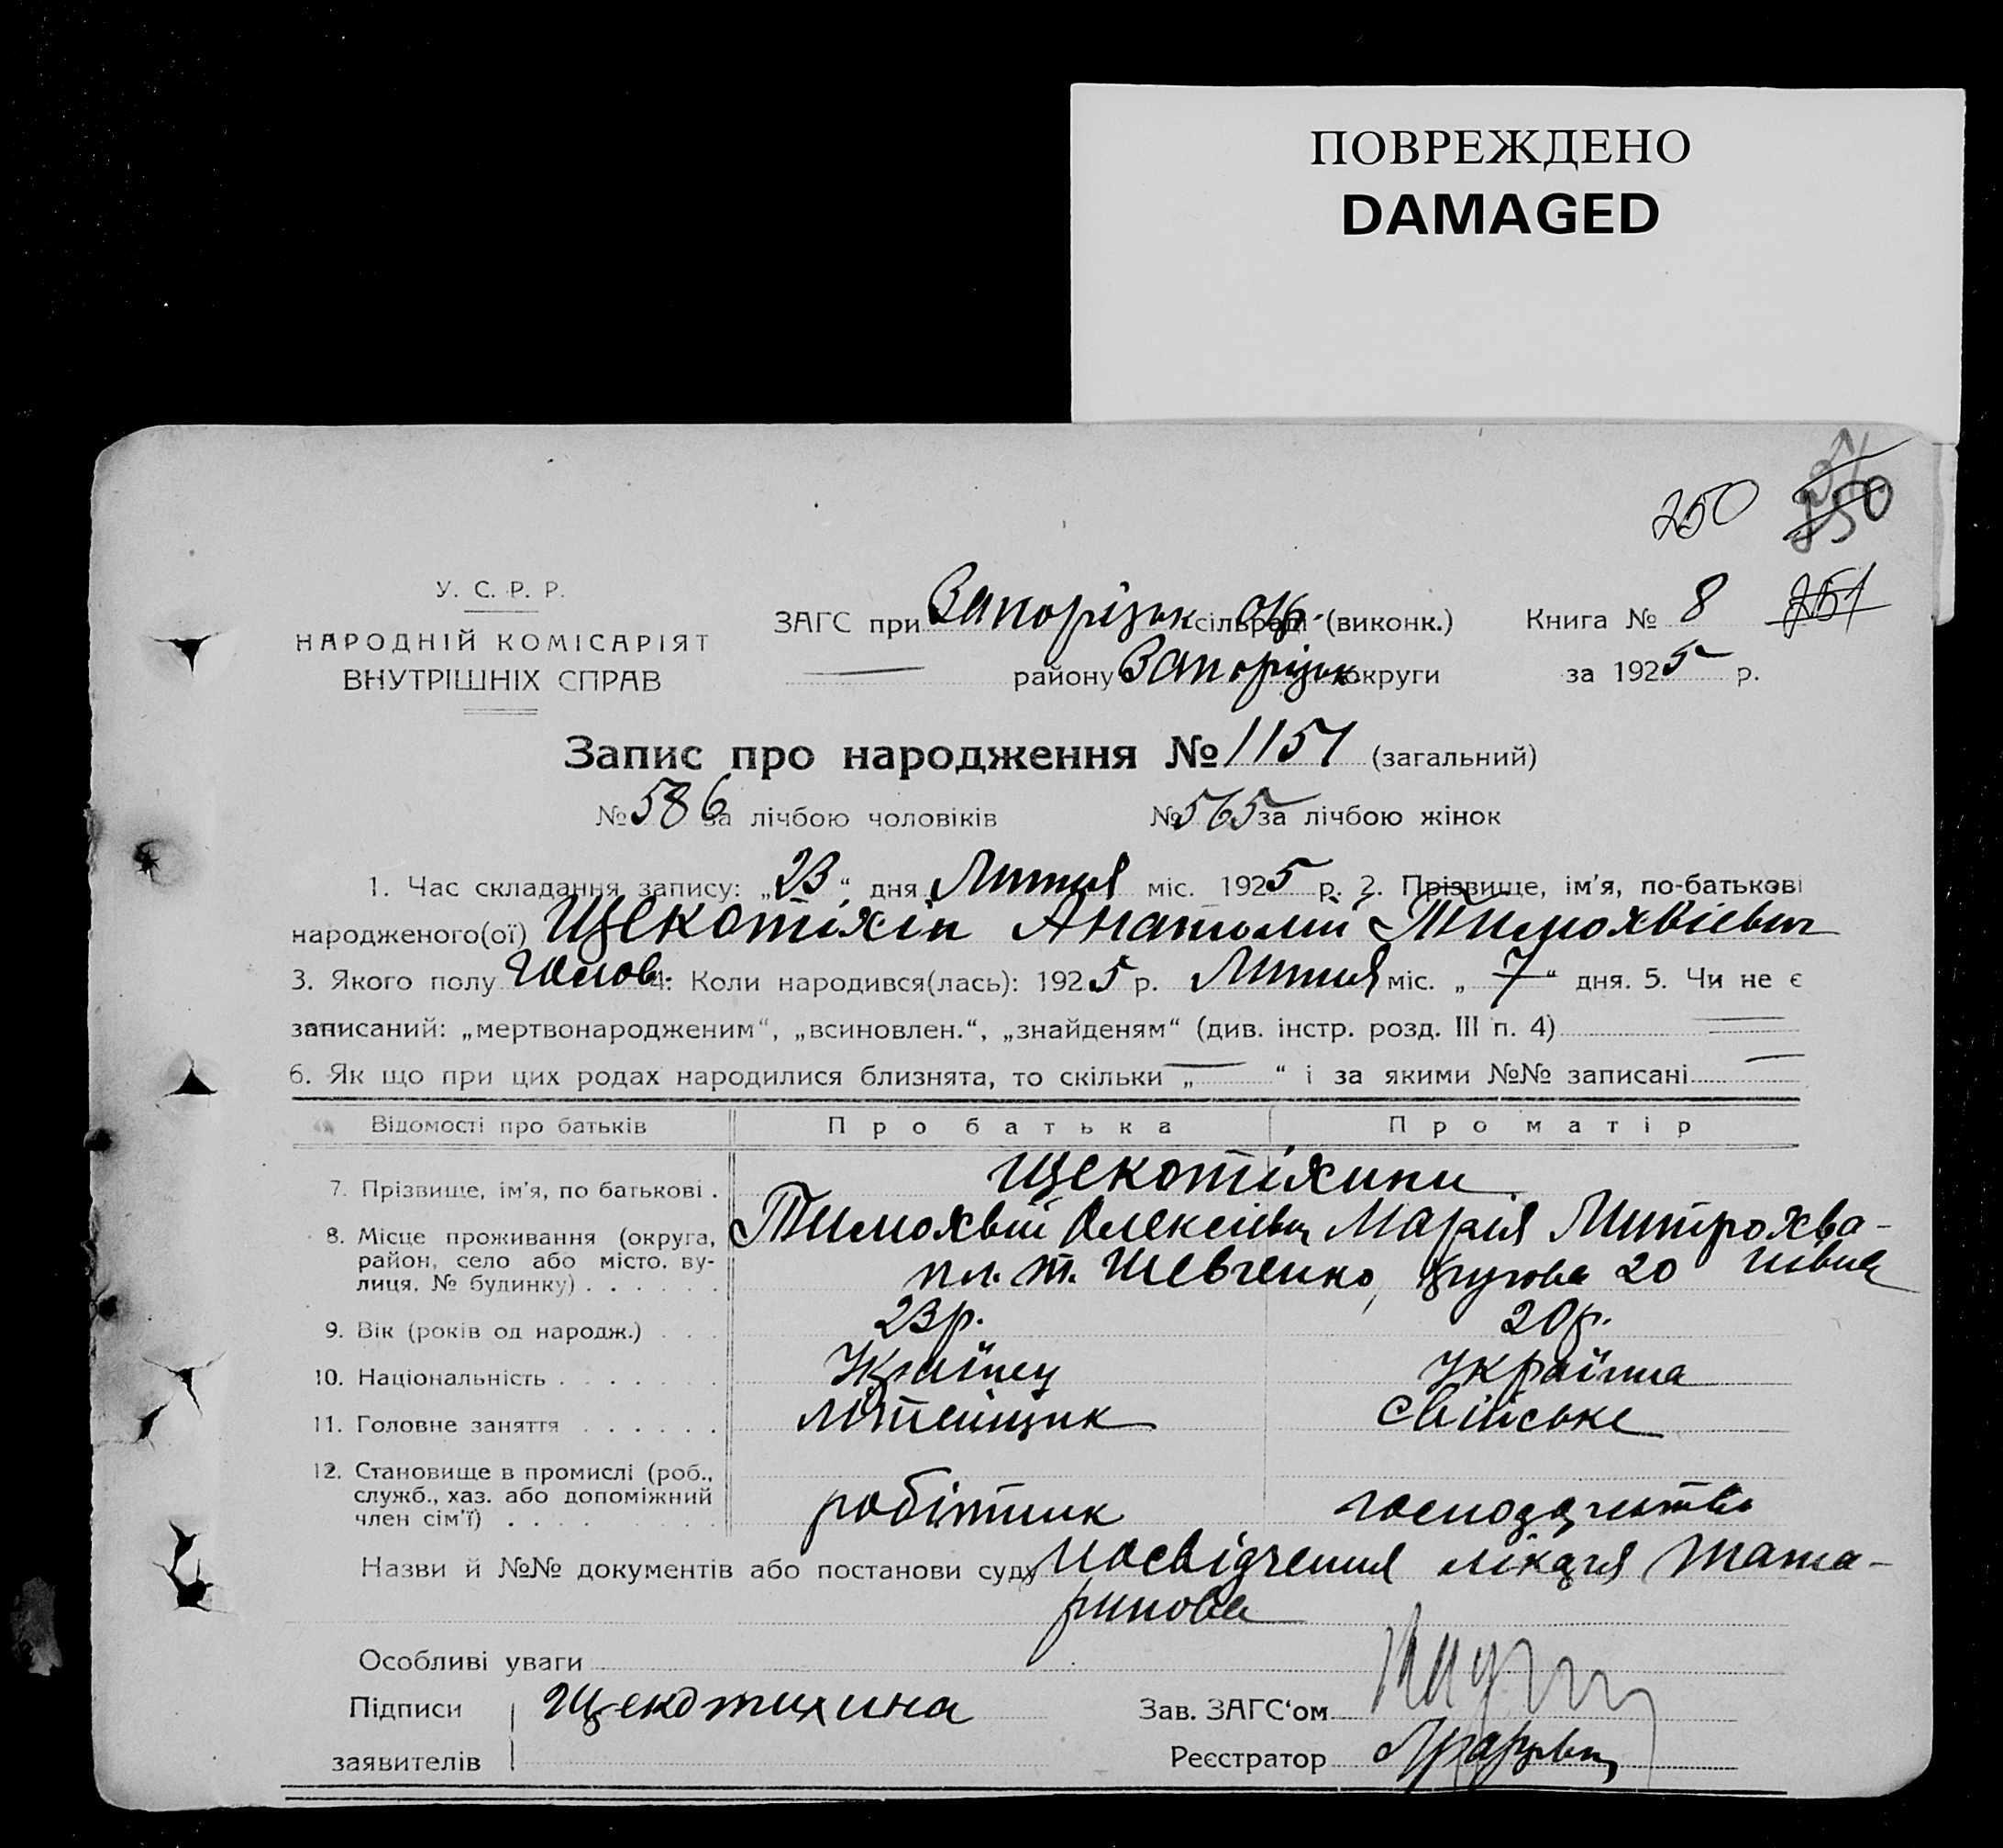 ПОВРЕЖДЕНО
DAMAGED
250 150
У. С. Р. Р.
НАРОДНІЙ КОМІСАРІЯТ
ВНУТРІШНІХ СПРАВ
ЗАГС при Запорізьк сільраді окр. (виконк.) Книга № 8 251
— району Запорізьк округи за 1925 р.
Запис про народження № 1151 (загальний)
№ 586 за лічбою чоловіків № 565 за лічбою жінок
1. Час складання запису: „23“ дня Литня міс. 1925 р. 2. Прізвище, ім'я, по-батькові
народженого(ої) Щекотіхін Анатолій Тимохвієвич
3. Якого полу чолов. 4. Коли народився(лась): 1925 р. Литня міс. „7“ дня. 5. Чи не є
записаний: „мертвонародженим“, „всиновлен.“, „знайденям“ (див. інстр. розд. III п. 4) —
6. Як що при цих родах народилися близнята, то скільки „—“ і за якими №№ записані —
Відомості про батьків Про батька Про матір
7. Прізвище, ім'я, по батькові . Щекотіхини
8. Місце проживання (округа, Тимохвій Олексієвич Марія Митрохва-
район, село або місто, ву- пл. Т. Шевченко, 20 нівна
лиця, № будинку) . . . . . .
9. Вік (років од народж.) . . . 23р. 20р.
10. Національність . . . . . . . Українец Українка
11. Головне заняття . . . . . . літейщик Свійське
12. Становище в промислі (роб.,
служб., хаз. або допоміжний робітник господарство
член сім'ї) . . . . . . . .
Назви й №№ документів або постанови суду Посвідчення лікаря Тата-
ринова
Особливі уваги
Підписи Щекотихина Зав. ЗАГС'ом
заявителів Реєстратор